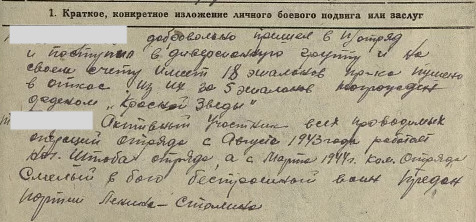 1. Краткое, конкретное изложение личного боевого подвига или заслуг
добровольно пришел в отряд
и поступил в диверсионную группу и на
своем счету имеет 18 эшалонов пр-ка пущено
в откос из их за 5 эшалонов награжден
орденом „Красной Звезды"
Активный участник всех проводимых
операций отряда с Августа 1943 года работает
Нач. Штаба отряда, а с Марта 1944г. ком. Отряда
Смелый в бою бестрашной воин предан
партии Ленина-Сталина